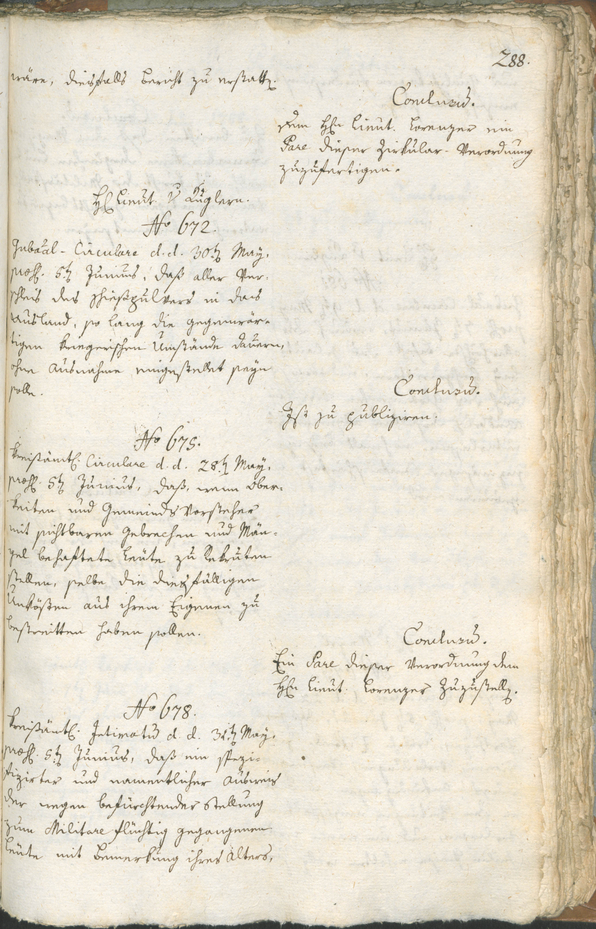 288.
wäre, diesfalls Bericht zu erstatt.
Conclusũ.
Dem H. Lieut. Lorenzer ein
Pare dieser Zirkular-Verordnung
zuzufertigen.
H. Lieut. v.
No 672.
Gubãal-Circulare d. d. 30t May,
præs. 5t Junius, daß aller Ver-
schleis des Schießpulvers in das
Ausland, so lang die gegenwär-
tigen kriegerischen Umstände dauern,
ohne Ausnahme eingestellet seyn
solle.
Conclusũ.
Ist zu publiziren.
No 675.
Kreisämtl. Circulare d. d. 28t May,
præs. 5t Junius, daß, wenn Obrig-
keiten und Gemeinds Vorsteher
mit sichtbaren Gebrechen und Män-
gel behaftete Leute zu Rekruten
stellen, selbe die diesfälligen
Unkösten aus ihrem Eigenen zu
bestreitten haben sollen.
Conclusũ.
Ein Pare dieser Verordnung dem
H. Lieut. Lorenzer zuzustell.
No 678.
Kreisämtl. Intimatũ d. d. 31t May,
præs. 5t Junius, daß ein spezi-
fizirter und namentlicher Ausweis
der wegen befürchtender Stellung
zum Militare flüchtig gegangenen
Leute mit Bemerkung ihres Alters,